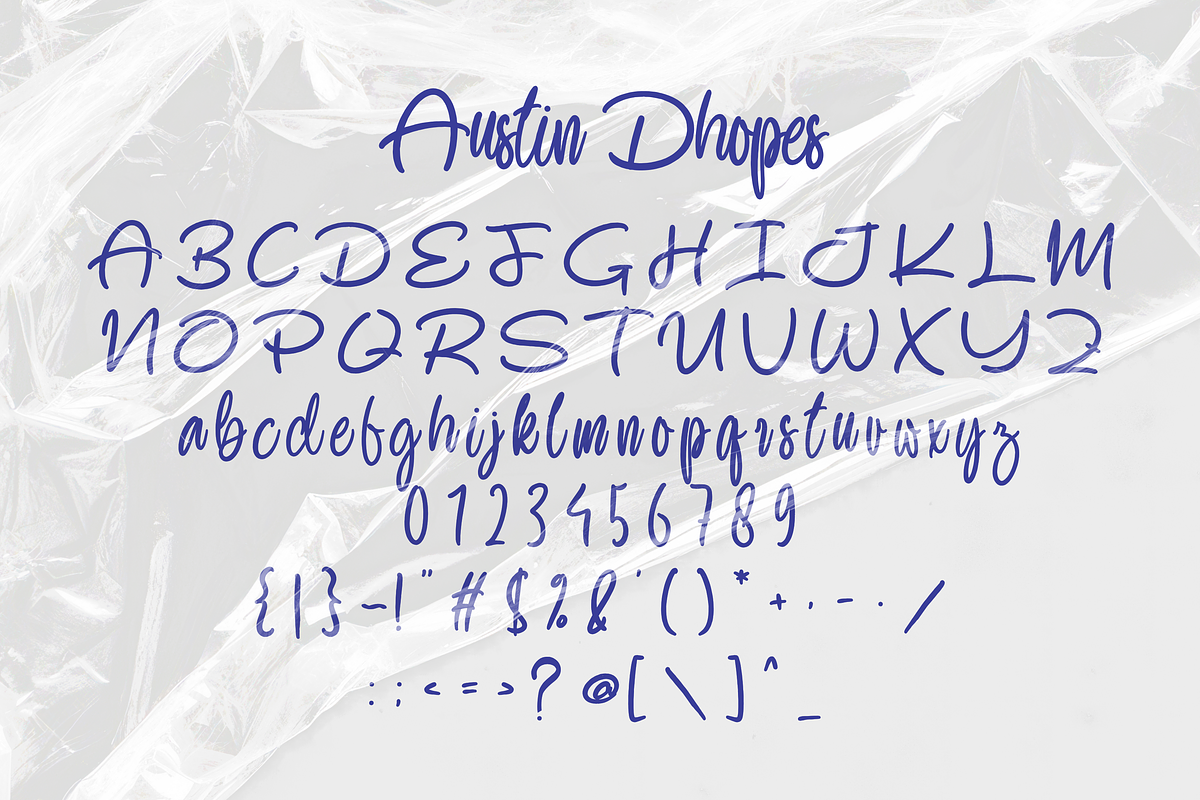 Austin Dhopes
ABCDEFGHIJKLM
NOPQRSTUVWXYZ
abcdefghijklmnopqrstuvwxyz
0123456789
{|}~!"#$%&'()*+,-./
:;<=>?@[\]^_